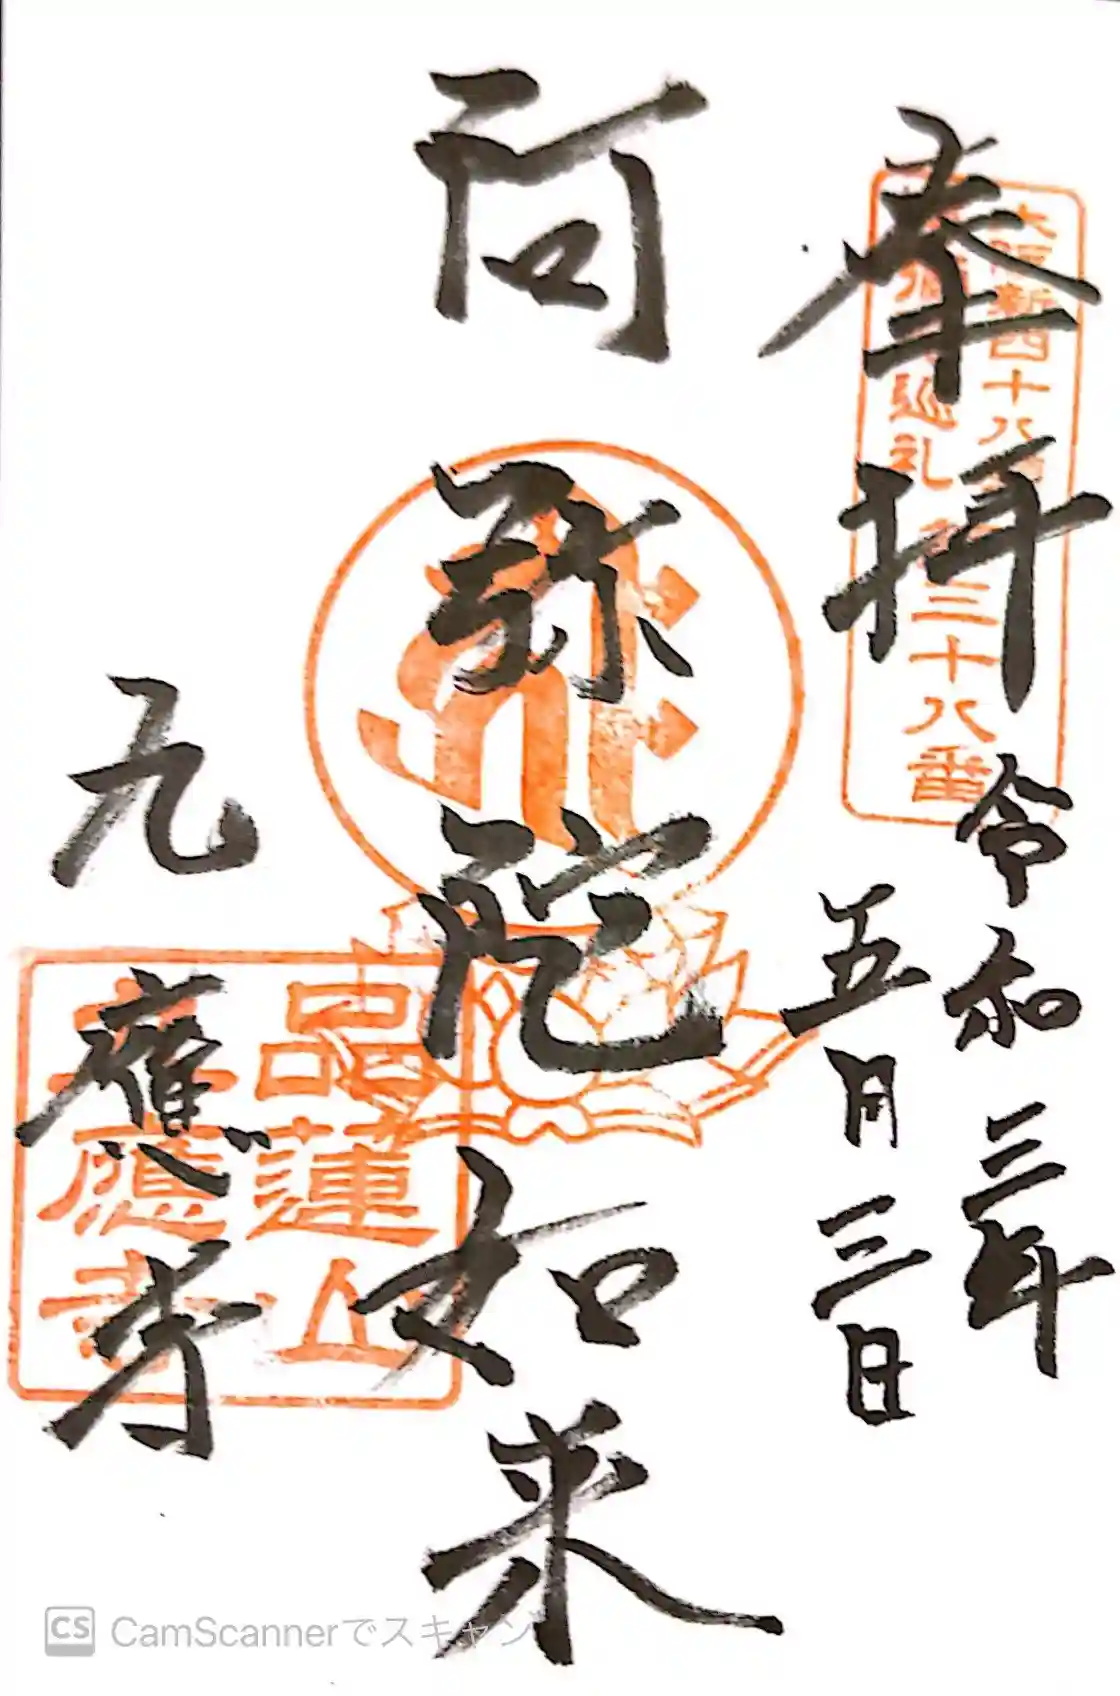 奉拝
大阪新四十八
巡礼 三十八番
令和三年
五月三日
阿弥陀如来
九應寺
品蓮山
應寺
CS CamScannerでスキャン